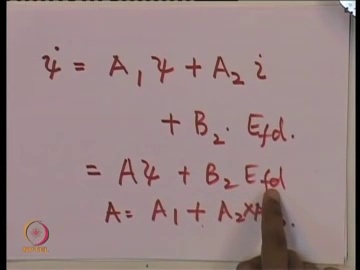 ψ̇ = A₁ ψ + A₂ i
+ B₂ . E_fd .
= Aψ + B₂ E_fd
A = A₁ + A₂ ×
NPTEL